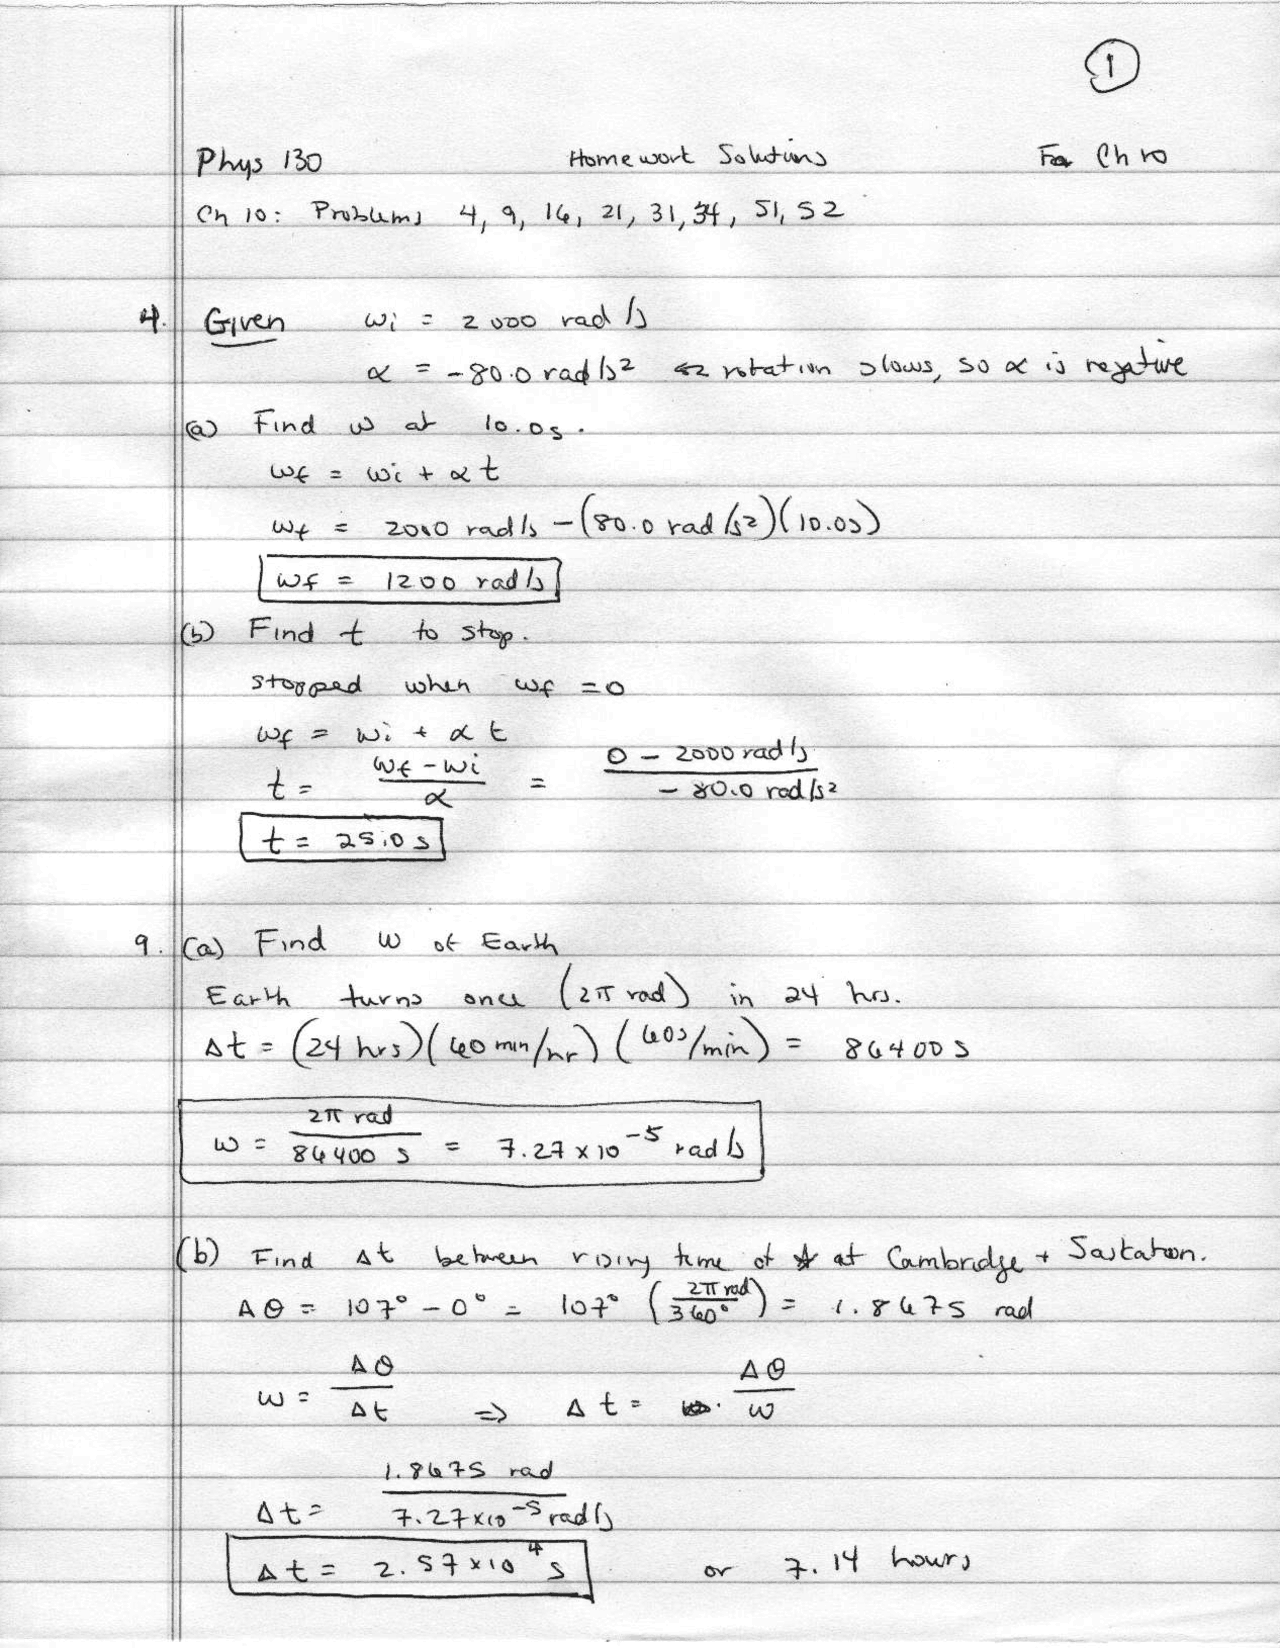 1
Phys 130 Homework Solutions Ch 10
Ch 10: Problems 4, 9, 16, 21, 31, 34, 51, 52
4. Given ωi = 2000 rad/s
α = -80.0 rad/s² ⇐ rotation slows, so α is negative
(a) Find ω at 10.0s.
ωf = ωi + αt
ωf = 2000 rad/s - (80.0 rad/s²)(10.0s)
ωf = 1200 rad/s
(b) Find t to stop.
stopped when ωf = 0
ωf = ωi + αt
t = (ωf - ωi)/α = (0 - 2000 rad/s)/(-80.0 rad/s²)
t = 25.0 s
9. (a) Find ω of Earth
Earth turns once (2π rad) in 24 hrs.
Δt = (24 hrs)(60 min/hr)(60s/min) = 86400 s
ω = 2π rad/86400 s = 7.27 x 10⁻⁵ rad/s
(b) Find Δt between rising time of ☆ at Cambridge + Saskatoon.
Δθ = 107° - 0° = 107° (2π rad/360°) = 1.8675 rad
ω = Δθ/Δt ⇒ Δt = Δθ/ω
Δt = 1.8675 rad/7.27x10⁻⁵ rad/s
Δt = 2.57 x 10⁴ s or 7.14 hours